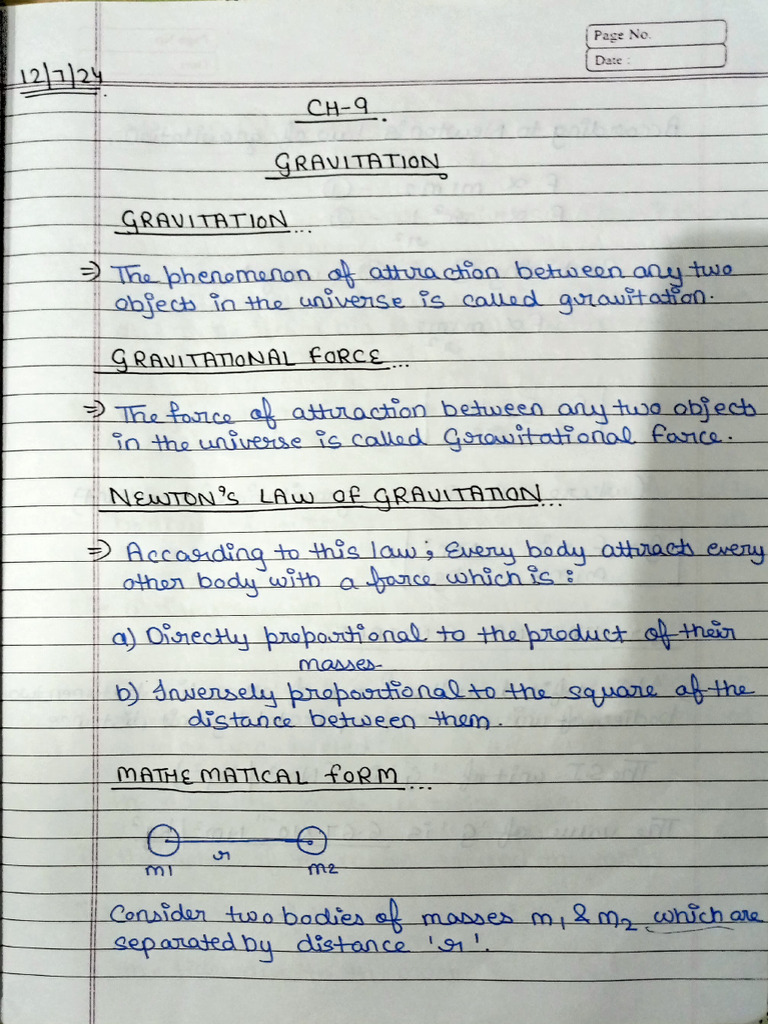 Page No.
Date :
12/7/24
CH-9.
GRAVITATION
GRAVITATION...
⇒ The phenomenon of attraction between any two
objects in the universe is called gravitation.
GRAVITATIONAL FORCE...
⇒ The force of attraction between any two objects
in the universe is called Gravitational force.
NEWTON'S LAW OF GRAVITATION...
⇒ According to this law; Every body attracts every
other body with a force which is :
a) Directly proportional to the product of their
masses
b) Inversely proportional to the square of the
distance between them.
MATHEMATICAL FORM...
r
m1 m2
Consider two bodies of masses m₁ & m₂ which are
separated by distance 'r'.